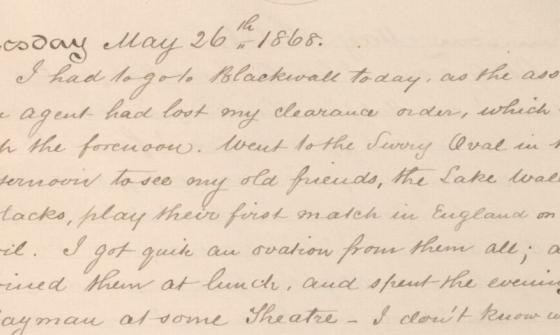 esday May 26th 1868.
I had to go to Blackwall today, as the ass
agent had lost my clearance order, which
the forenoon. Went to the Surry Oval in
ternoon to see my old friends, the Lake Wall
lacks, play their first match in England on
il. I got quite an ovation from them all; a
oined them at lunch, and spent the evening
ayman at some Theatre - I don't know